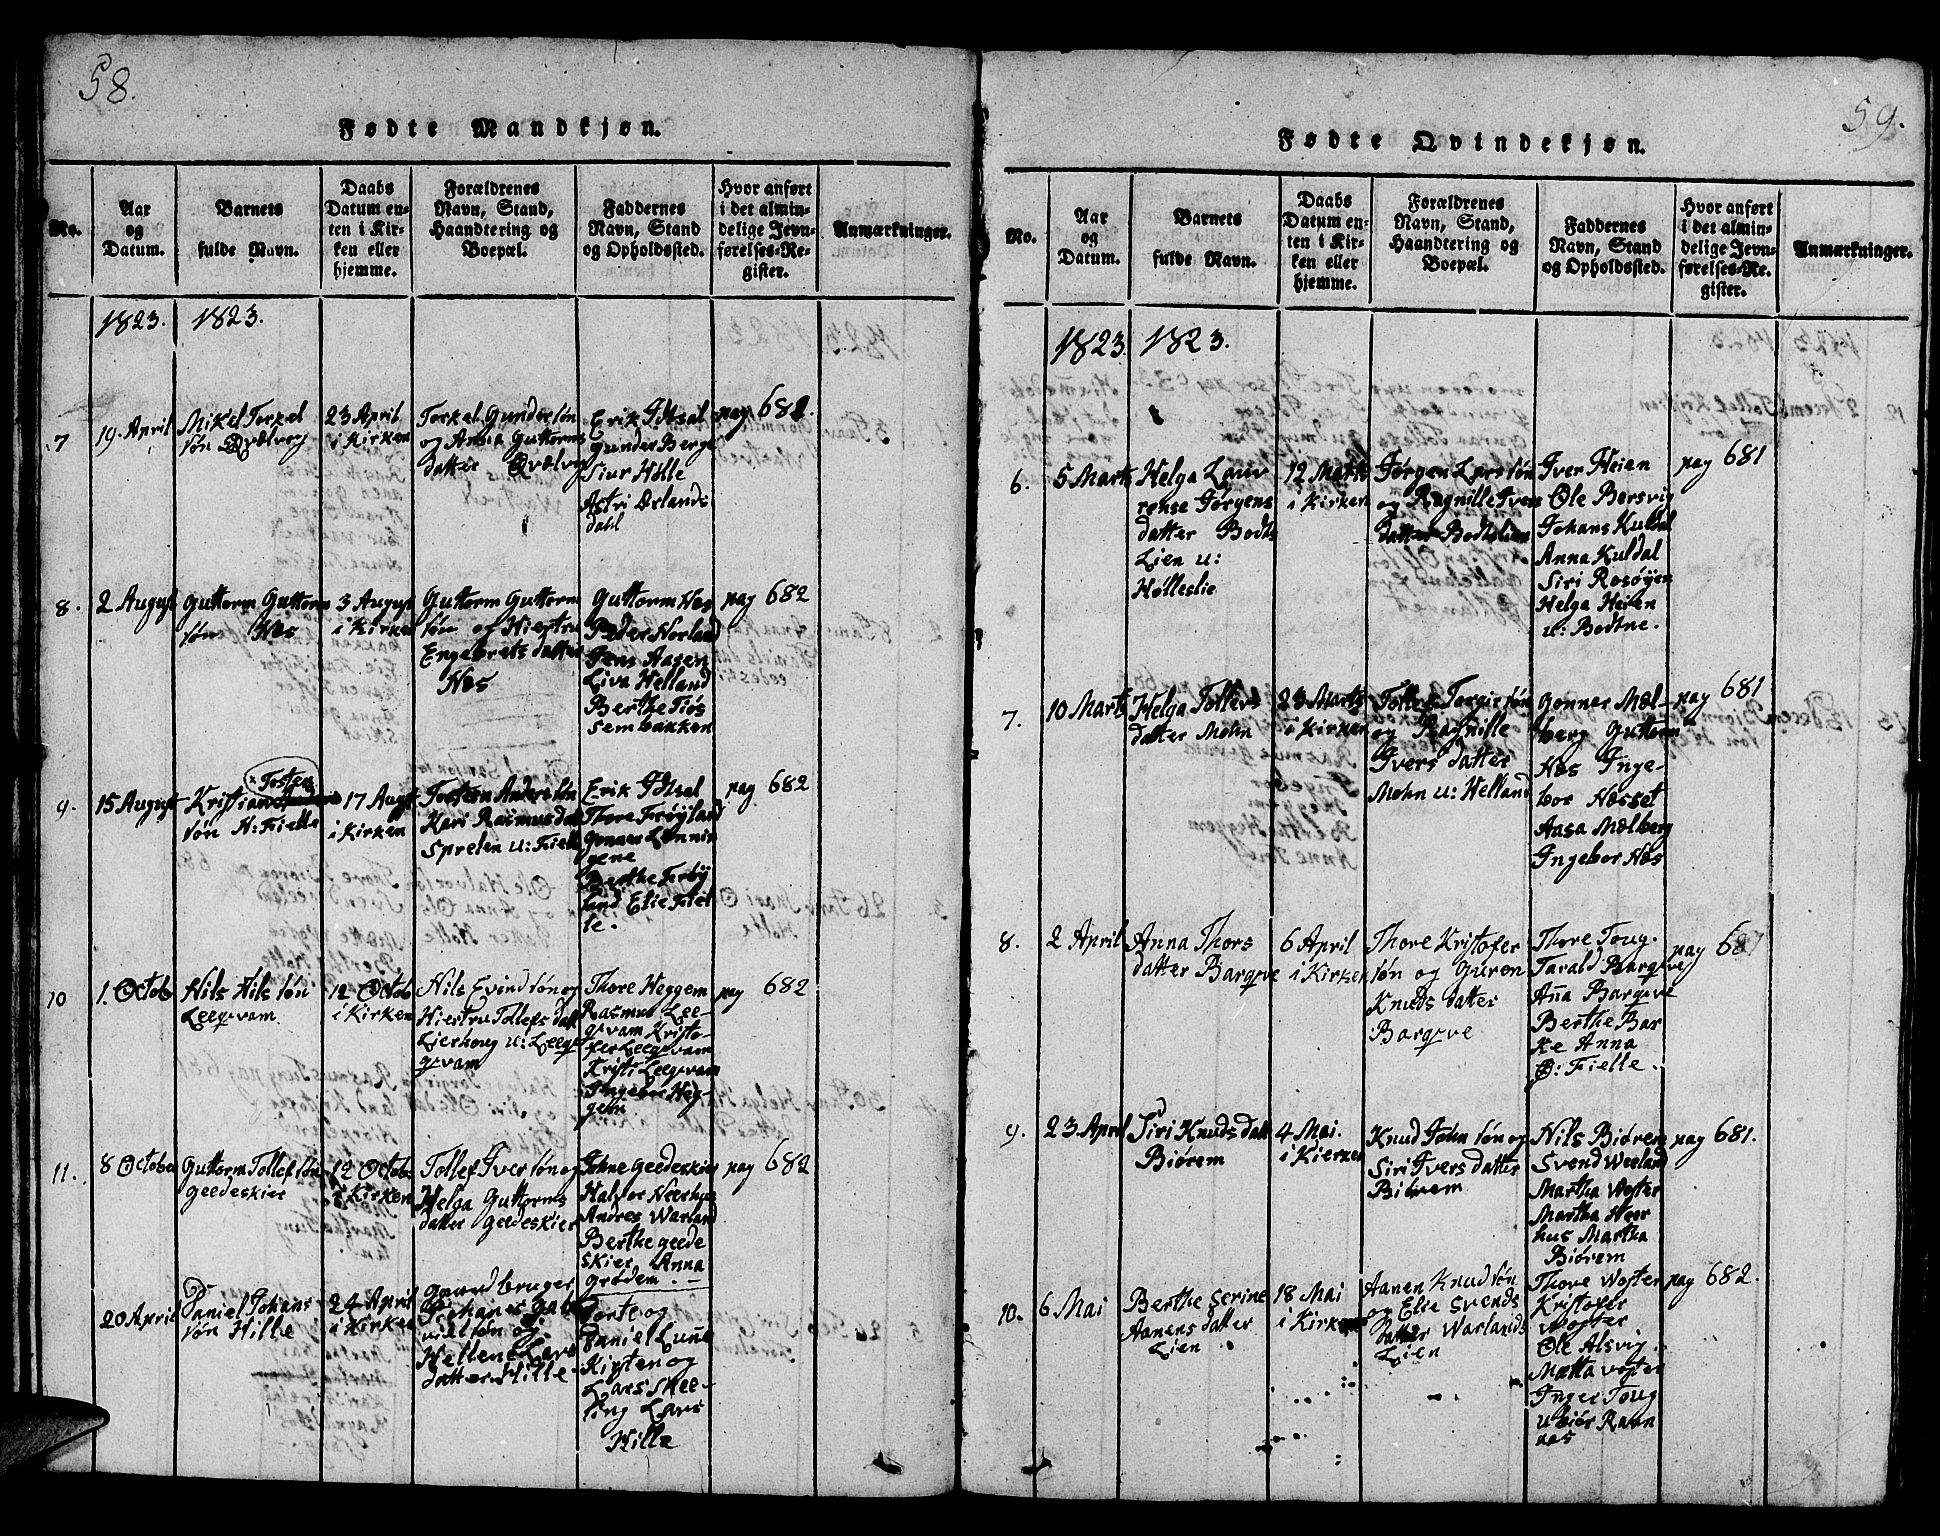 58.
Fødte Mandkjøn.
No.
Aar
og
Datum.
Barnets
fulde Navn.
Daabs
Datum en-
ten i Kir-
ken eller
hjemme.
Forældrenes
Navn, Stand,
Haandtering og
Boepæl.
Faddernes
Navn, Stand
og Opholdssted.
Hvor anført
i det almin-
delige Jevn-
førelses-Re-
gister.
Anmærkninger.
1823.
1823.
7
19. April
Mikel Torkel
søn Qvælvog
23 April
i Kirken
Torkel Gundersøn
og Anna Guttorms
datter Qvælvog
Erik Idsal
Gunder Berge
Siur Hølle
Astri Ørlands
dahl
pag 682.
8.
2 August
Guttorm Guttorm
søn Næs
3 August
i Kirken
Guttorm Guttorm
søn og Hiertru
Engebrets datter
Næs
Guttorm Næs
Peder Norland
Jens Aasen
Liva Helland
Berthe Fiøs
sembakken
pag 682
9.
15 August
Tosten
Kristian
søn H: Fielle
17 Augst
i Kirken
Torsten Andersøn
Kari Rasmusdat
Spreten u: Fielle
Erik Idsal
Thore Frøyland
Gonner Lønnin
gene
Berthe Frøy
land Elie Fiel
le.
pag 682
10
1. Octob
Nils Nils søn
Leeqvam
12 Octob
i Kirken
Nils Evindsøn og
Hiertru Tollefs datt
Lierhoug u: Leeq
qvam
Thore Heggem
Rasmus Lee-
qvam Kristo-
fer Leeqvam
Kristi Leeqvam
Ingebor Heg-
gem
pag 682
11.
8 October
Guttorm Tollef søn
Geedeskier
12 Octob
i Kirken
Tollef Iversøn og
Helga Guttorms
datter Geedeskier
Johne Geedeskier
Halvor Neerhus
Andres Warland
Berthe Geede
skier Anna
Grødem.
pag 682
20 April
Daniel Johans
søn Hille
24 April
i Kirken
Gaard bruger
Johanes Dan
nielsøn og
Hellene Lars
datter Hille
Dorte og
Daniel Lune
Kirsten og
Lars Skee-
ling Lars
Hille
59.
Fødte Qvindekjøn.
No.
Aar
og
Datum.
Barnets
fulde Navn.
Daabs
Datum en-
ten i Kir-
ken eller
hjemme.
Forældrenes
Navn, Stand,
Haandtering og
Boepæl.
Faddernes
Navn, Stand
og Opholdssted.
Hvor anført
i det almin-
delige Jevn-
førelses-Re-
gister.
Anmærkninger.
1823.
1823.
6.
5 Marts
Helga Laur
rense Jørgens
datter Bodts
Lien u:
Hølleslie
12 Marts
i Kirken
Jørgen Larssøn
og Ragnille Ivers
datter Bodtslien
Iver Heien
Ole Børsvig
Johans Kuldal
Anna Kuldal
Siri Rosøyen
Helga Heien
u: Bodtne.
pag 681
7.
10 Marts
Helga Tollevs
datter Mohn
28 Marts
i Kirken
Tollef Torgiersøn
og Ragnille
Ivers datter
Mohn u: Helland
Gonner Mæl-
berg Guttorm
Næs Inge-
bor Næsset
Aasa Mælberg
Ingebor Næs
pag 681
8.
2 April
Anna Thors
datter Barqve
6 April
i Kirken
Thore Kristofer
søn og Guren
Knuds datter
Barqve
Thore Toug.
Tarald Barqve
Aña Barqve
Berthe Bar
ke Anna
Ø: Fielle.
pag 681
9.
23. April
Siri Knuds datt
Biørem
4 Mai.
i Kierken
Knud John søn og
Siri Ivers datter
Biørem
Nils Biørem
Svend Weeland
Martha Woster
Martha Neer
hus Martha
Biørem
pag 681.
10.
6 Mai
Berthe Serine
Aanens datter
Lien
18 Mai
i Kirken
Aanen Knudsøn
og Elie Svends
datter Warlands
Lien
Thore Woster
Kristofer
Woster
Ole Alsvig.
Matta Voster
Inger Toug
u Biør Ravn
aas
pag 682.